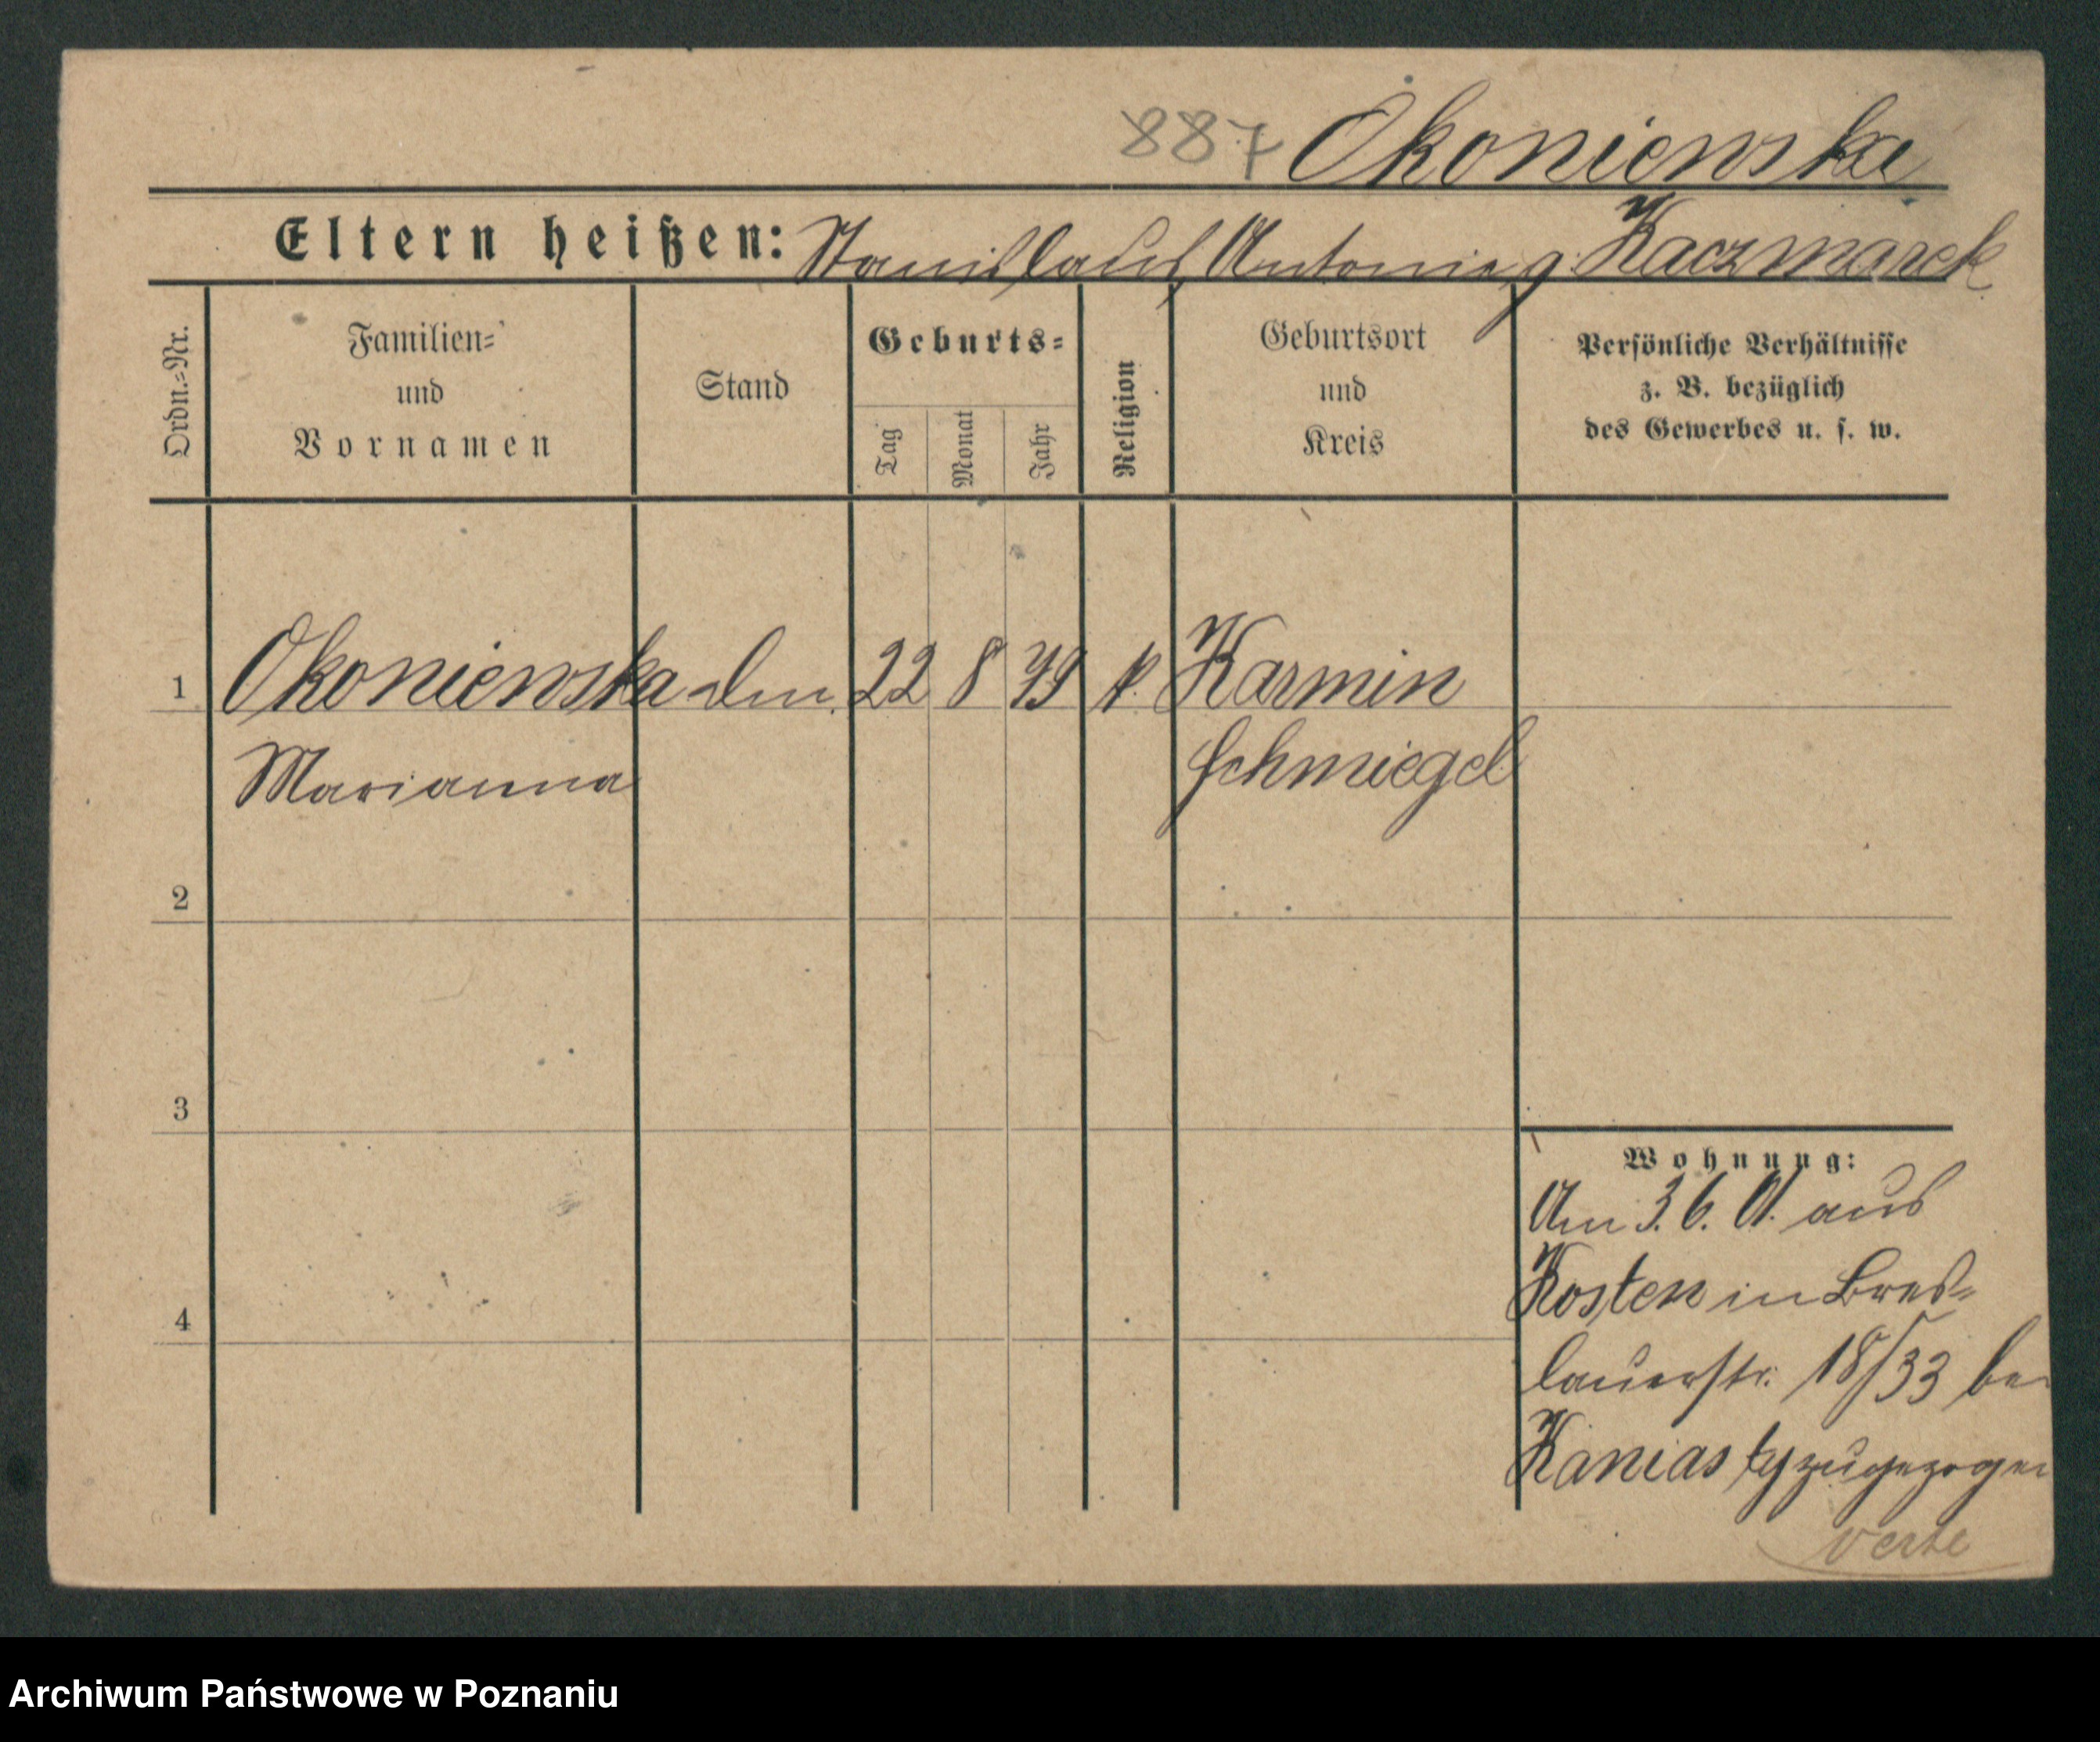 887 Okonienska
Eltern heißen: Stanislaus, Antonie g. Kaczmarek
Ordn.=Nr.
Familien= und Vornamen
Stand
Geburts=
Tag
Monat
Jahr
Religion
Geburtsort und Kreis
Persönliche Verhältnisse z. B. bezüglich des Gewerbes u. s. w.
1 Okonienska 22 8 79 k. Karmin
Marianna Schmiegel
2
3
4
Wohnung:
Am 3. 6. 01. aus
Kosten in Bres=
lauerstr. 18/33 bei
Kaniasty zugezogen
verte
Archiwum Państwowe w Poznaniu